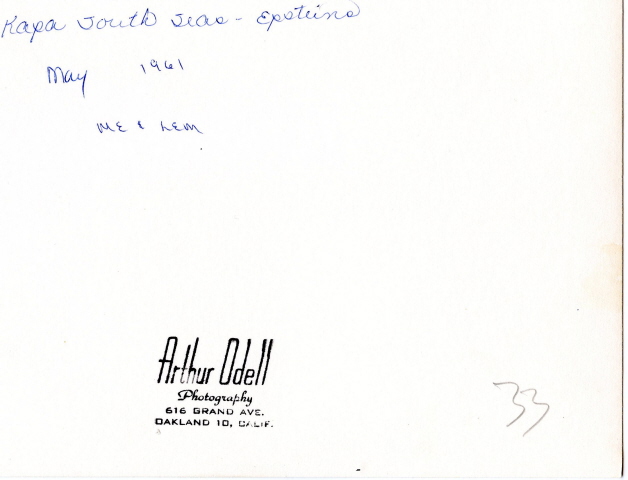 Kapa South Seas - Epsteins
May 1961
ME & LEM
Arthur Odell
Photography
616 GRAND AVE.
OAKLAND 10, CALIF.
33